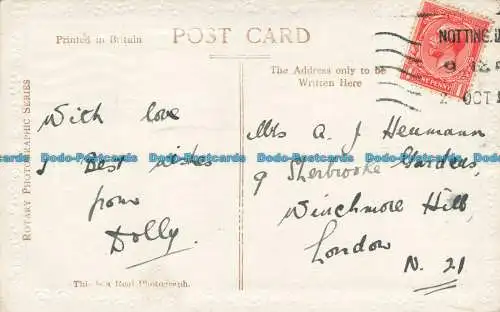 Printed in Britain
POST CARD
The Address only to be
Written Here
NOTTING
OCT
ONE PENNY
ROTARY PHOTOGRAPHIC SERIES
With love
& Best wishes
from
Dolly.
Mrs A. J Heumann
9 Sherbrooke Gardens,
Winchmore Hill,
London
N. 21
This is a Real Photograph.
Dodo-Postcards Dodo-Postcards Dodo-Postcards Dodo-Postcards Dodo-Postcards